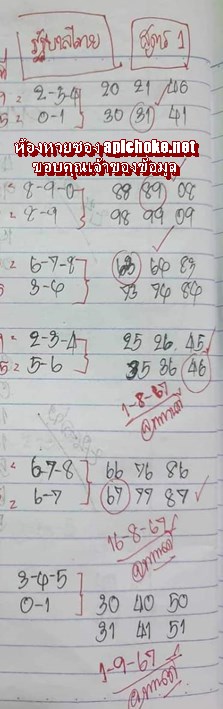 รัฐบาลไทย สูตร 1
2-3-4 20 21 46
0-1 30 31 41
ห้องหวยซอง apichoke.net
ขอบคุณเจ้าของข้อมูล
8-9-0 88 89 08
8-9 98 99 09
6-7-8 63 64 83
3-6 73 74 84
2-3-4 25 26 45
5-6 35 36 46
1-8-67
6-7-8 66 76 86
6-7 67 77 87
16-8-67
3-4-5
0-1 30 40 50
31 41 51
1-9-67